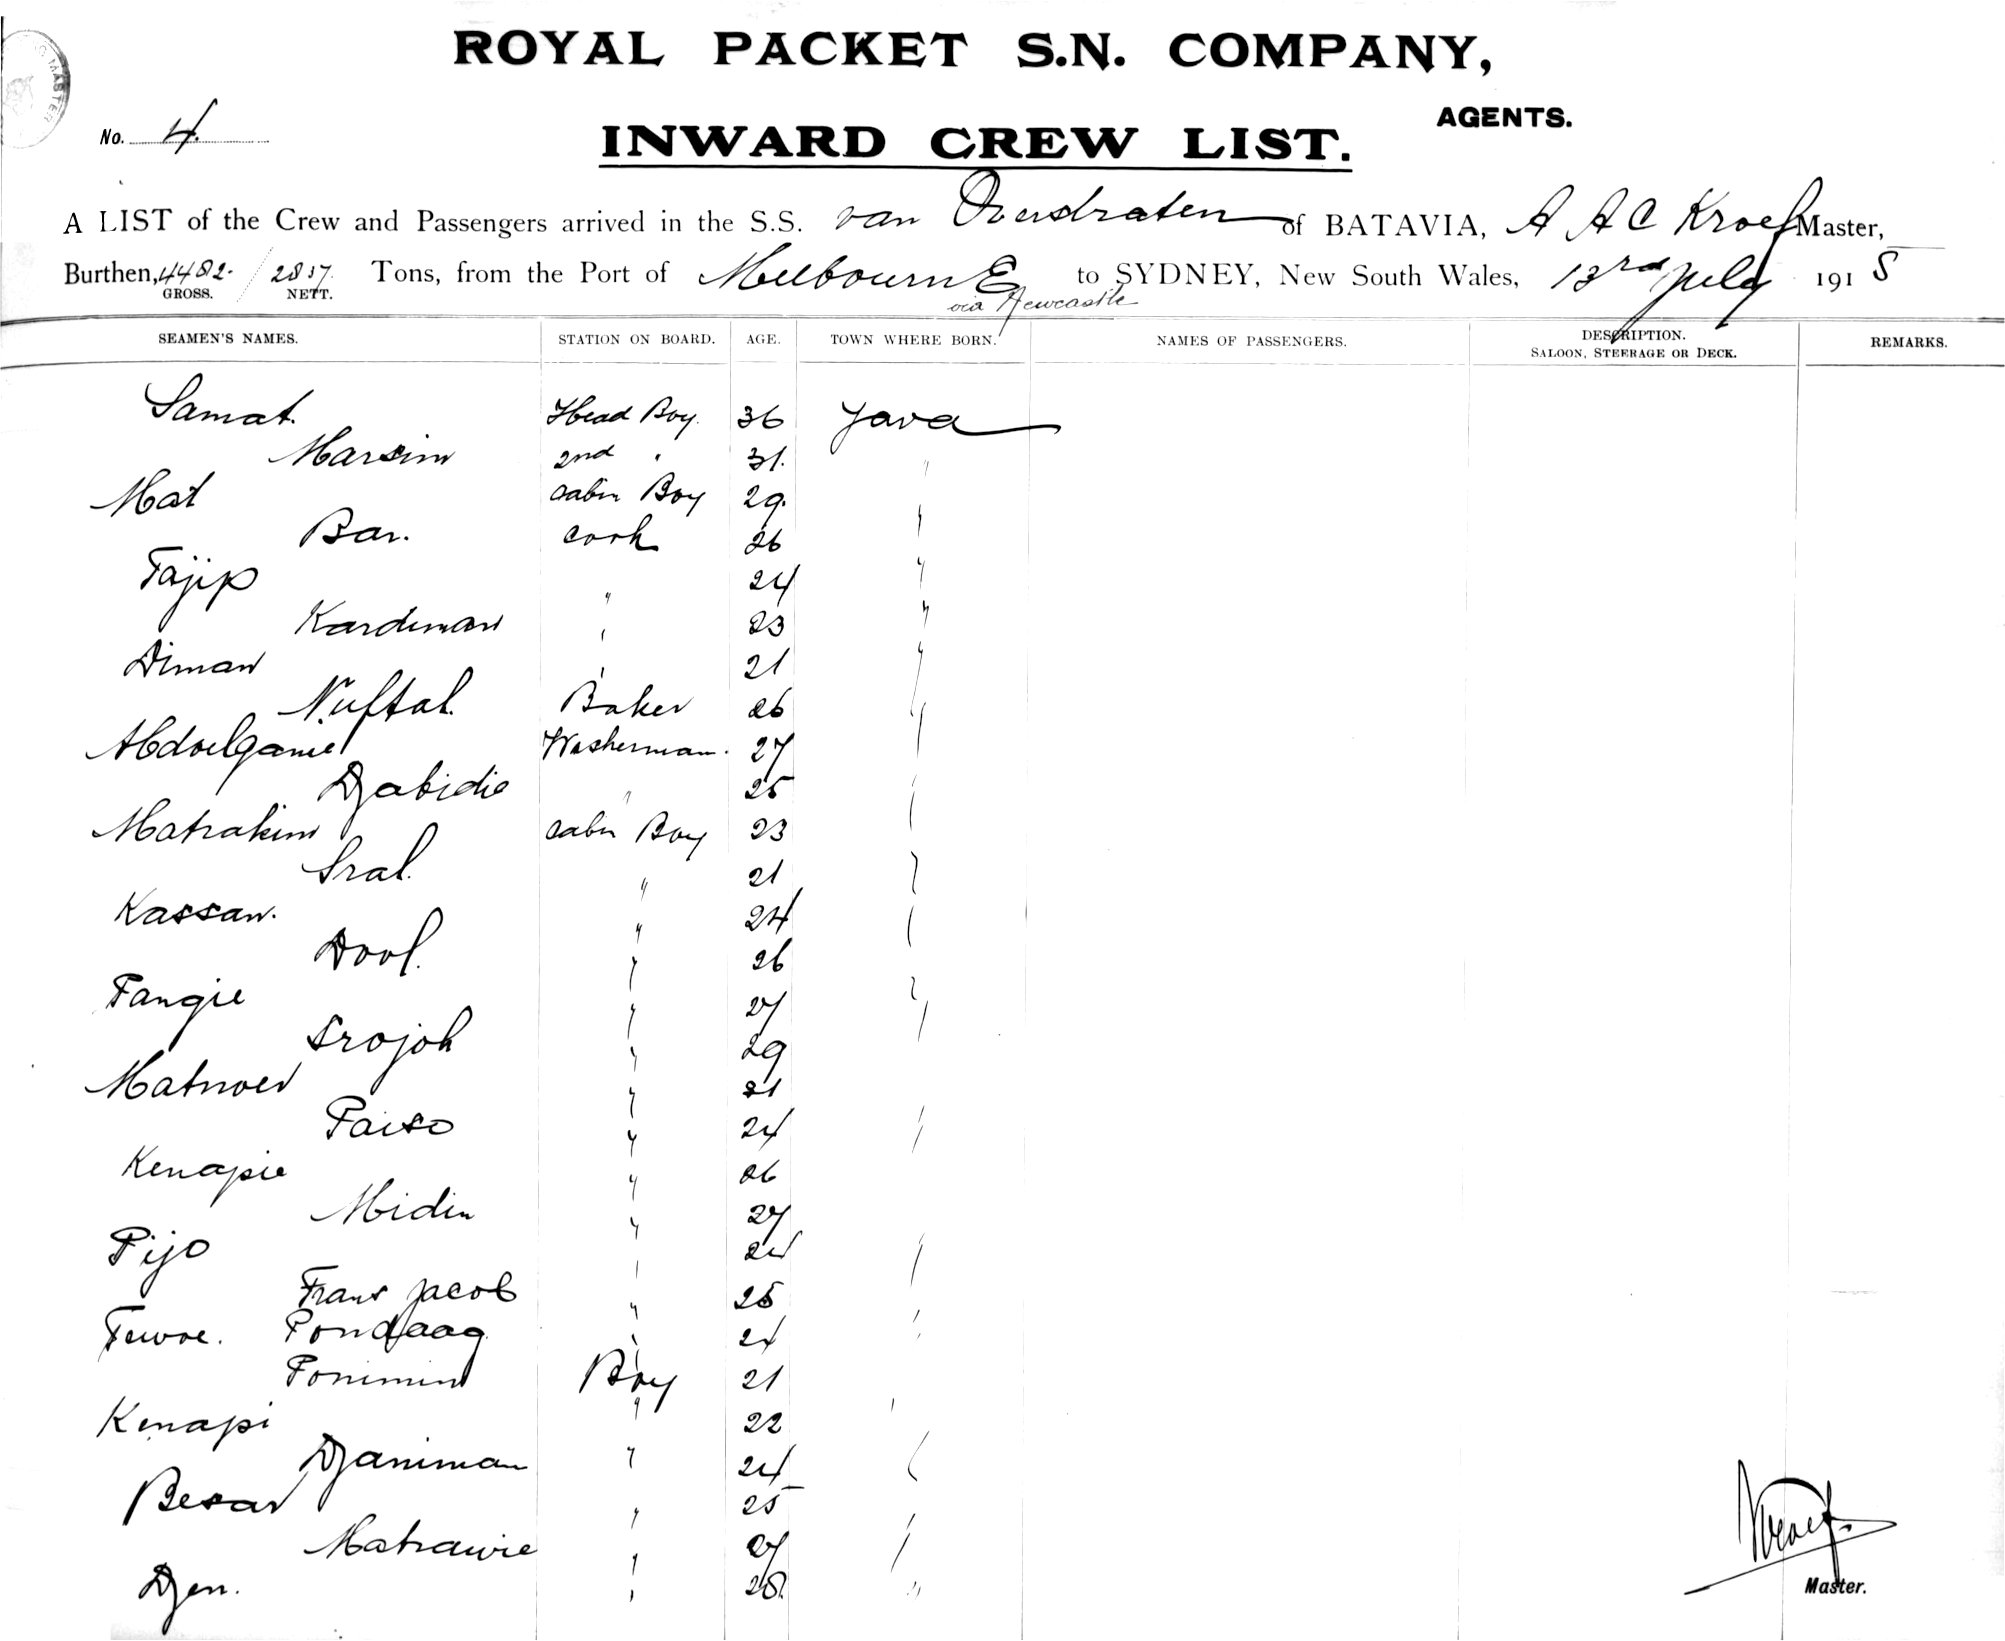 ROYAL PACKET S.N. COMPANY,
AGENTS.
MASTER
No. 4.
INWARD CREW LIST.
A LIST of the Crew and Passengers arrived in the S.S. van Overstraten of BATAVIA, A A C Kroef Master,
Burthen, 4482. / 2837. Tons, from the Port of MelbournE to SYDNEY, New South Wales, 13rd July 1915
GROSS. NETT. via Newcastle
SEAMEN'S NAMES. STATION ON BOARD. AGE. TOWN WHERE BORN. NAMES OF PASSENGERS. DESCRIPTION. SALOON, STEERAGE OR DECK. REMARKS.
Samat. Head Boy. 36 Java
Marsim 2nd " 31. "
Mat cabin Boy 29. "
Bar. cook 26 "
Tajip " 24 "
Kardiman " 23 "
Diman " 21 "
Nuftal. Baker 26 "
Abdoelganie Washerman. 27 "
Djabidie " 25 "
Matrakim cabin Boy 23 "
Sral. " 21 "
Kassan. " 24 "
Dool. " 26 "
Tangie " 27 "
Srojoh " 29
Matnoer " 21
Paiso " 24 "
Kenapie " 26
Midin " 27
Pijo " 24 "
Frans Jacob " 25
Tewoe. Pondaag " 24 "
Ponimin Boy 21
Kenapi " 22 "
Djaniman " 24 "
Besar " 25
Matrawie " 27 "
Djen. " 28. "
Kroef.
Master.